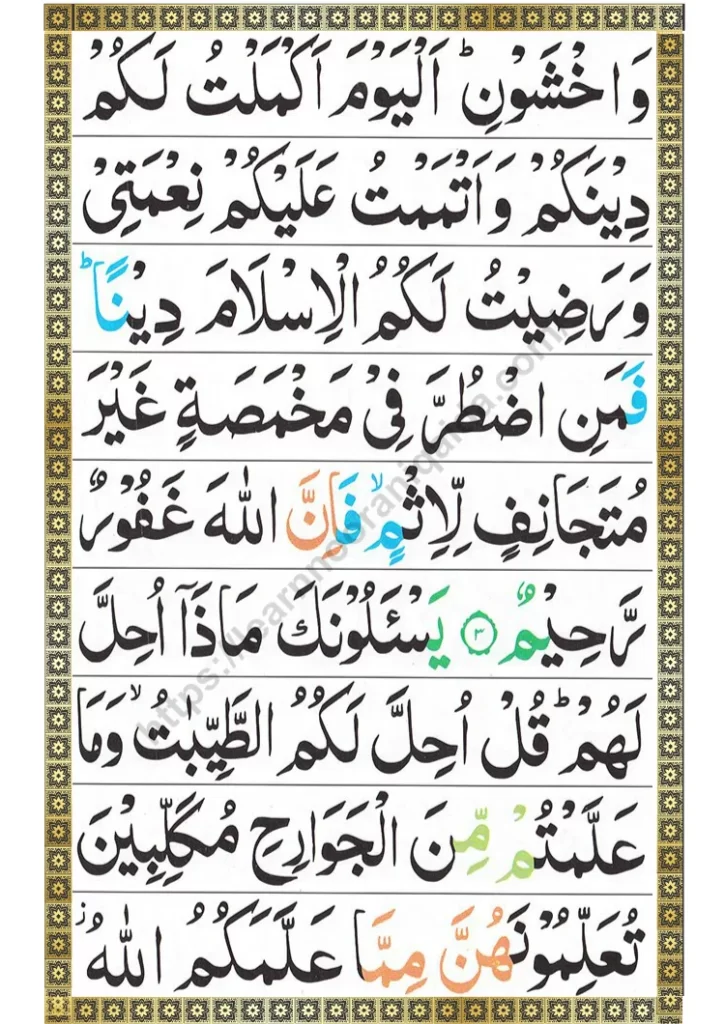 وَاخْشَوْنِ ؕ اَلْيَوْمَ اَكْمَلْتُ لَكُمْ
دِيْنَكُمْ وَاَتْمَمْتُ عَلَيْكُمْ نِعْمَتِيْ
وَرَضِيْتُ لَكُمُ الْاِسْلَامَ دِيْنًا ؕ
فَمَنِ اضْطُرَّ فِيْ مَخْمَصَةٍ غَيْرَ
مُتَجَانِفٍ لِّاِثْمٍ ۙ فَاِنَّ اللّٰهَ غَفُوْرٌ
رَّحِيْمٌ ۝۳ يَسْـَٔلُوْنَكَ مَاذَاۤ اُحِلَّ
لَهُمْ ؕ قُلْ اُحِلَّ لَكُمُ الطَّيِّبٰتُ ۙ وَمَا
عَلَّمْتُمْ مِّنَ الْجَوَارِحِ مُكَلِّبِيْنَ
تُعَلِّمُوْنَهُنَّ مِمَّا عَلَّمَكُمُ اللّٰهُ ؗ
https://learnnooraniqaida.com/